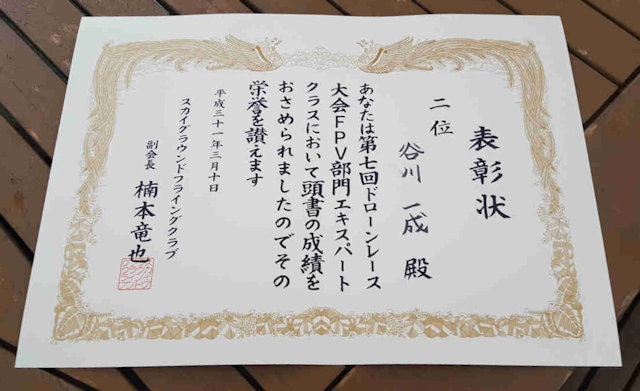 表彰状
二位
谷川一成 殿
あなたは第七回ドローンレース
大会FPV部門エキスパート
クラスにおいて頭書の成績を
おさめられましたのでその
栄誉を讃えます
平成三十一年三月十日
スカイグラウンドフライングクラブ
副会長 楠本竜也